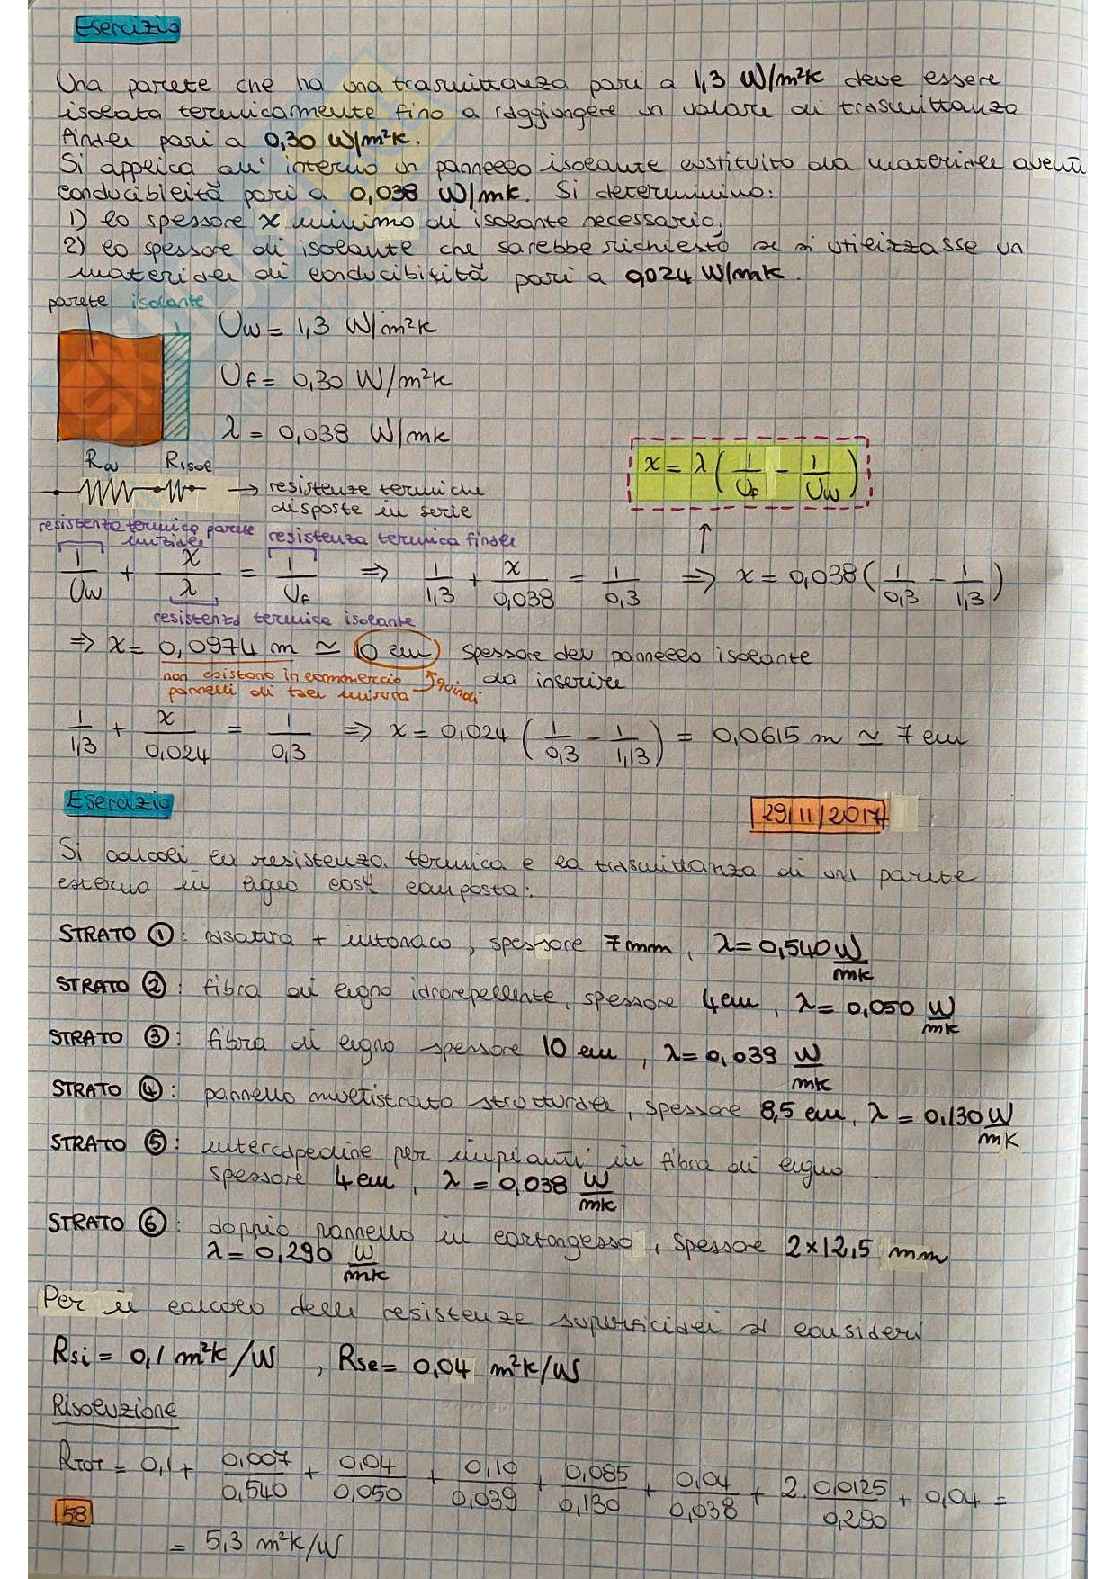 Esercizio
Una parete che ha una trasmittanza pari a 1,3 W/m²K deve essere
isolata termicamente fino a raggiungere un valore di trasmittanza
finale pari a 0,30 W/m²K.
Si applica all'interno un pannello isolante costituito da materiale avente
conducibilità pari a 0,038 W/mK. Si determinino:
1) lo spessore x minimo di isolante necessario;
2) lo spessore di isolante che sarebbe richiesto se si utilizzasse un
materiale di conducibilità pari a 0,024 W/mK.
parete isolante
Uw = 1,3 W/m²K
Uf = 0,30 W/m²K
λ = 0,038 W/mK
x = λ ( 1/Uf - 1/Uw )
Rw Risol
→ resistenze termiche
disposte in serie
resistenza termica parete
iniziale
resistenza termica finale
1/Uw + x/λ = 1/Uf ⇒ 1/1,3 + x/0,038 = 1/0,3 ⇒ x = 0,038 ( 1/0,3 - 1/1,3 )
resistenza termica isolante
⇒ x = 0,0974 m ≃ 10 cm spessore del pannello isolante
da inserire
non esistono in commercio
pannelli di tale misura → quindi
1/1,3 + x/0,024 = 1/0,3 ⇒ x = 0,024 ( 1/0,3 - 1/1,3 ) = 0,0615 m ≃ 7 cm
Esercizio
29/11/2017
Si calcoli la resistenza termica e la trasmittanza di una parete
esterna in legno così composta:
STRATO ①: rasatura + intonaco, spessore 7mm, λ = 0,540 W/mK
STRATO ②: fibra di legno idrorepellente, spessore 4 cm, λ = 0,050 W/mK
STRATO ③: fibra di legno spessore 10 cm, λ = 0,039 W/mK
STRATO ④: pannello multistrato strutturale, spessore 8,5 cm, λ = 0,130 W/mK
STRATO ⑤: intercapedine per impianti in fibra di legno
spessore 4 cm, λ = 0,038 W/mK
STRATO ⑥: doppio pannello in cartongesso, spessore 2×12,5 mm
λ = 0,290 W/mK
Per il calcolo delle resistenze superficiali si consideri
Rsi = 0,1 m²K/W , Rse = 0,04 m²K/W
Risoluzione
RTOT = 0,1 + 0,007/0,540 + 0,04/0,050 + 0,10/0,039 + 0,085/0,130 + 0,04/0,038 + 2·0,0125/0,290 + 0,04 =
58
= 5,3 m²K/W